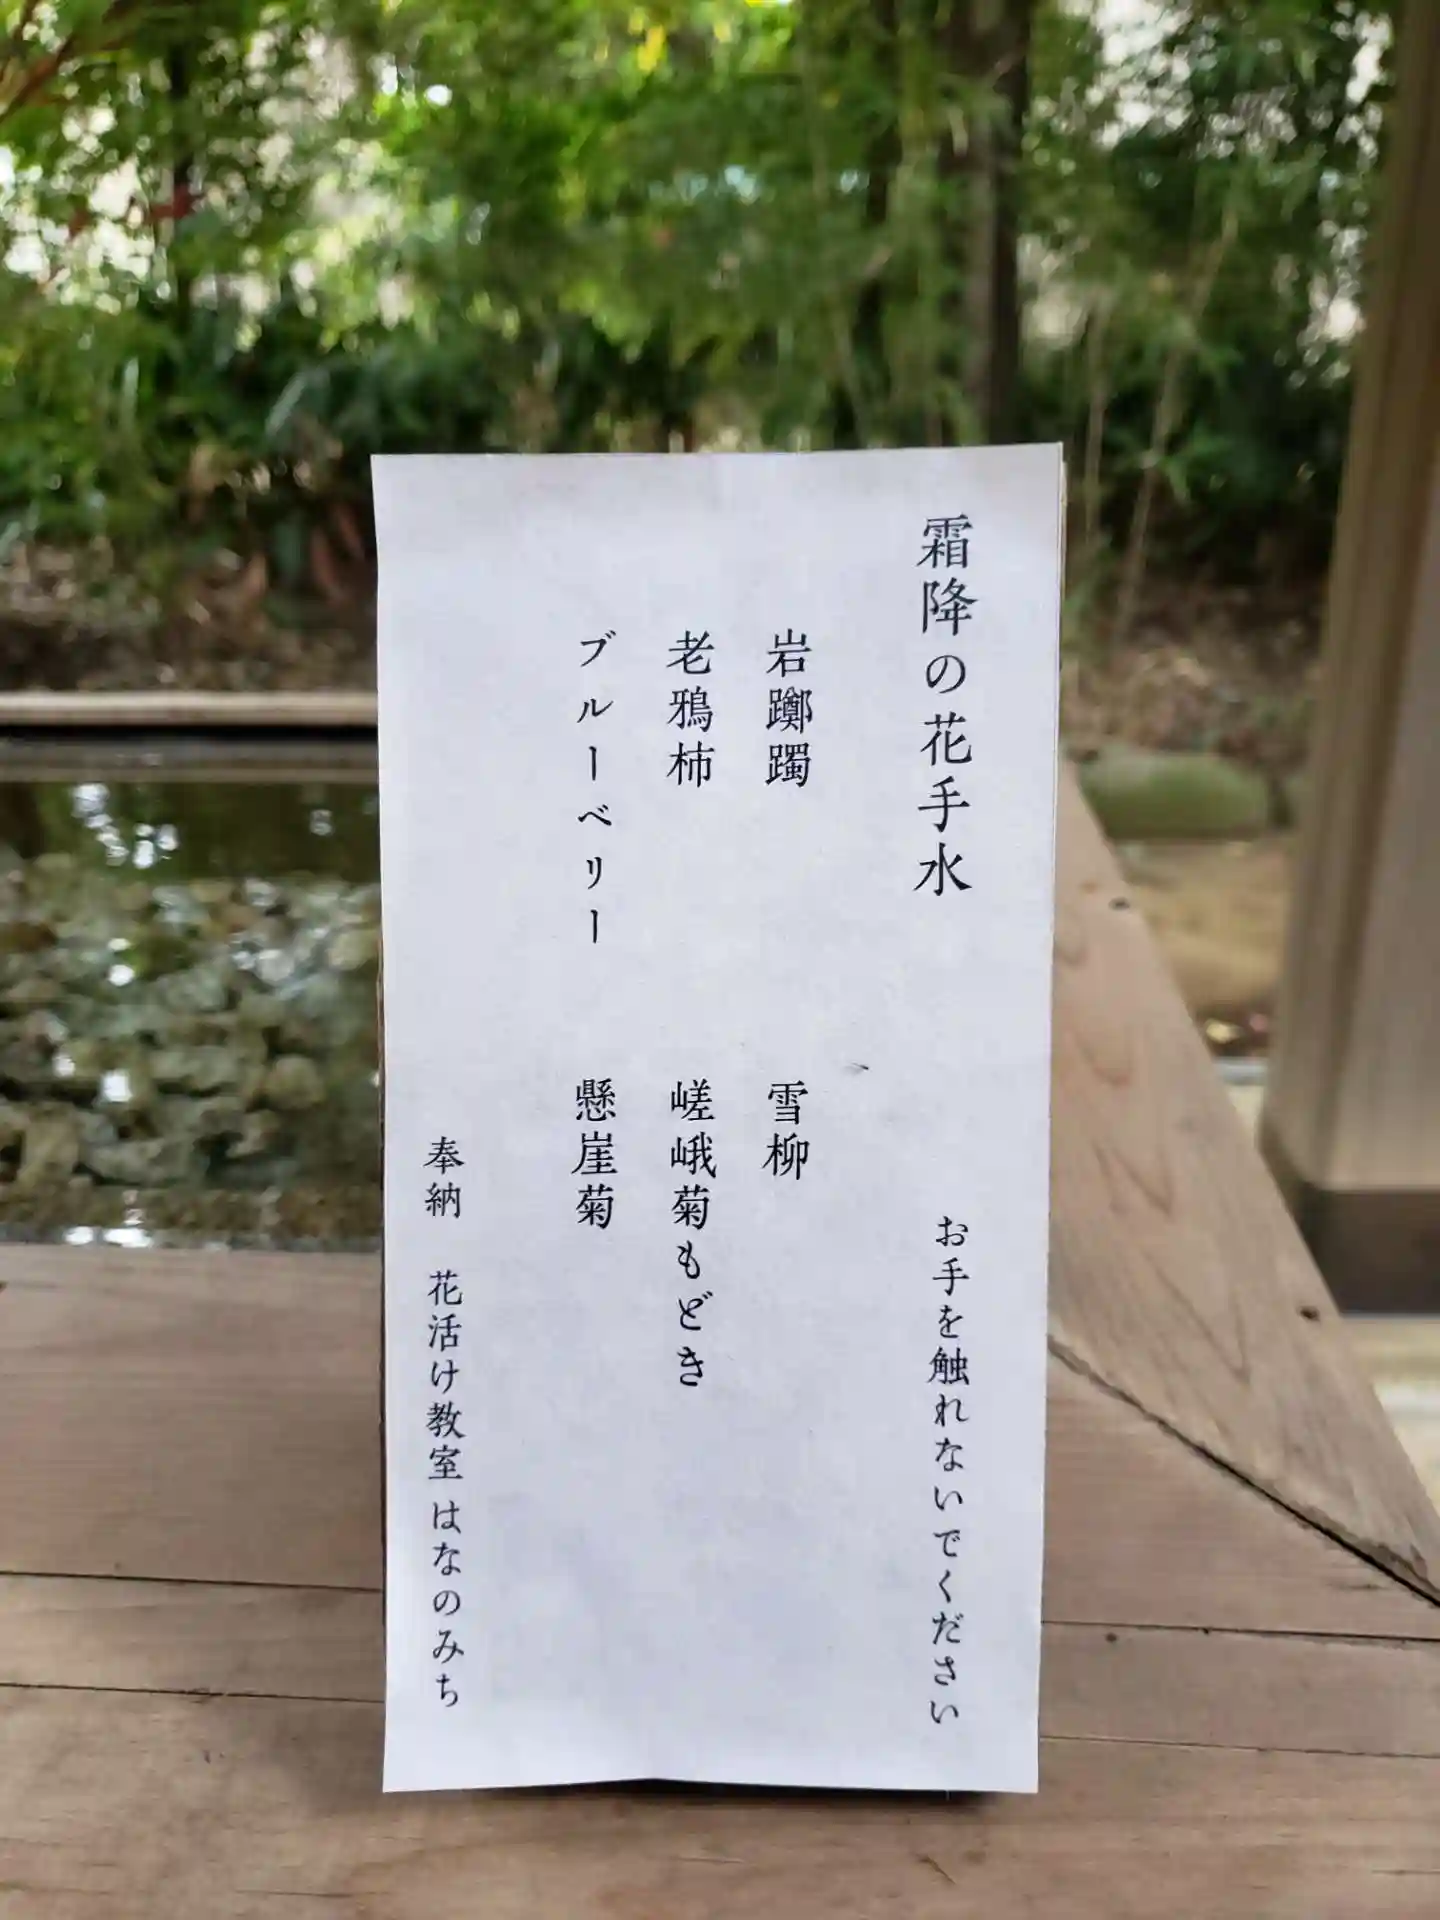 霜降の花手水
お手を触れないでください
岩躑躅
雪柳
老鴉柿
嵯峨菊もどき
ブルーベリー
懸崖菊
奉納 花活け教室 はなのみち